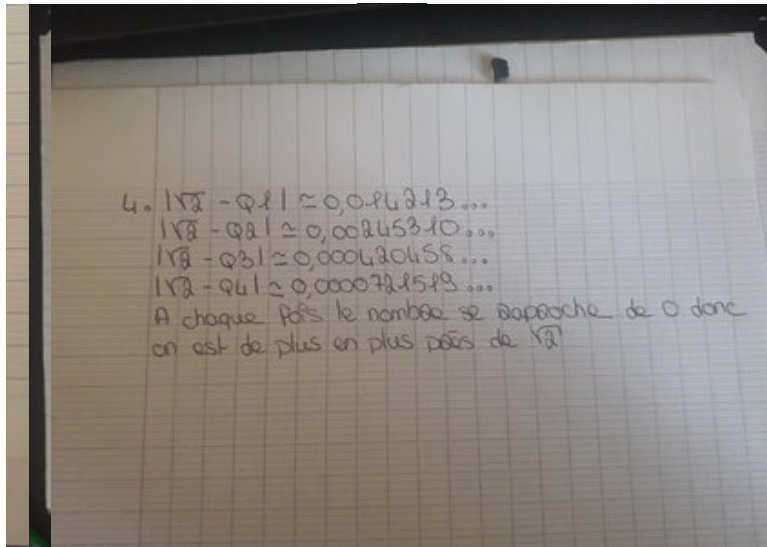 4. |√2 - Q1| ≃ 0,014213...
|√2 - Q2| ≃ 0,00245310...
|√2 - Q3| ≃ 0,000420458...
|√2 - Q4| ≃ 0,0000721519...
A chaque fois le nombre se rapproche de 0 donc
on est de plus en plus près de √2